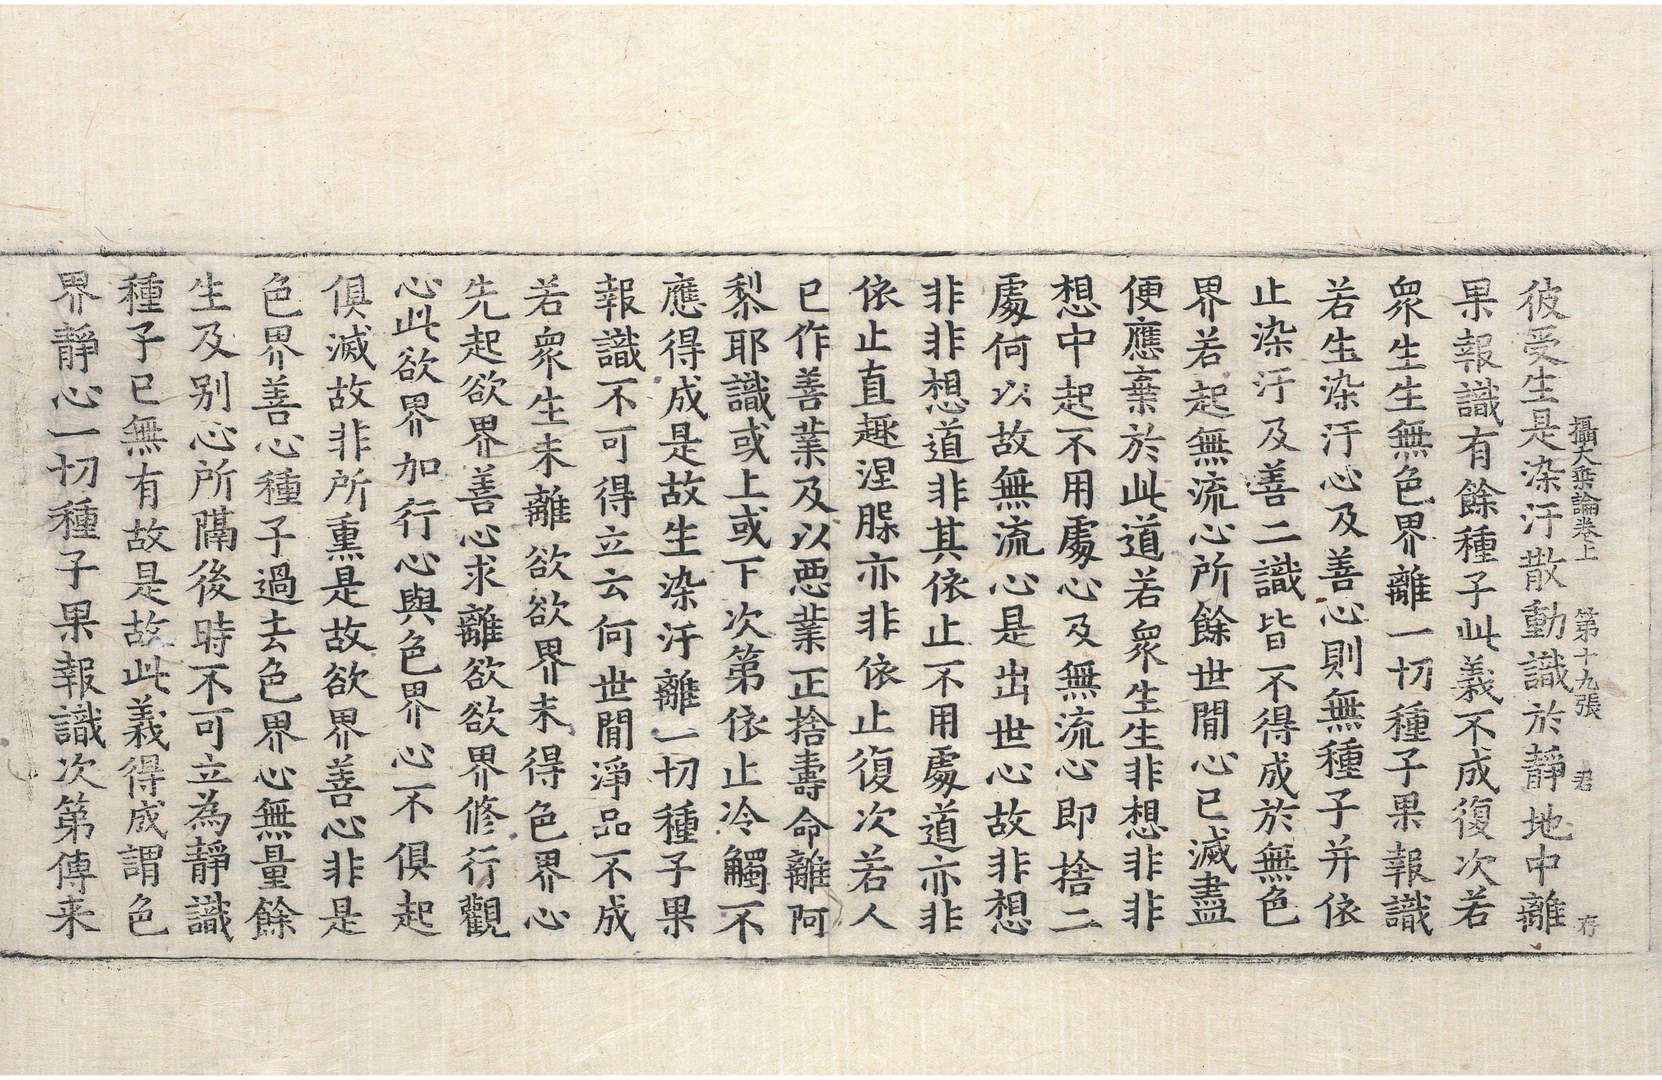 攝大乘論卷上 第十九張 君 存
彼受生是染汙散動識於靜地中離
果報識有餘種子此義不成復次若
衆生生無色界離一切種子果報識
若生染汙心及善心則無種子并依
止染汙及善二識皆不得成於無色
界若起無流心所餘世閒心已滅盡
便應棄於此道若衆生生非想非非
想中起不用處心及無流心即捨二
處何以故無流心是出世心故非想
非非想道非其依止不用處道亦非
依止直趣涅槃亦非依止復次若人
已作善業及以惡業正捨壽命離阿
黎耶識或上或下次第依止冷觸不
應得成是故生染汙離一切種子果
報識不可得立云何世閒淨品不成
若衆生未離欲欲界未得色界心
先起欲界善心求離欲欲界修行觀
心此欲界加行心與色界心不俱起
俱滅故非所熏是故欲界善心非是
色界善心種子過去色界心無量餘
生及別心所隔後時不可立為靜識
種子已無有故是故此義得成謂色
界靜心一切種子果報識次第傳来